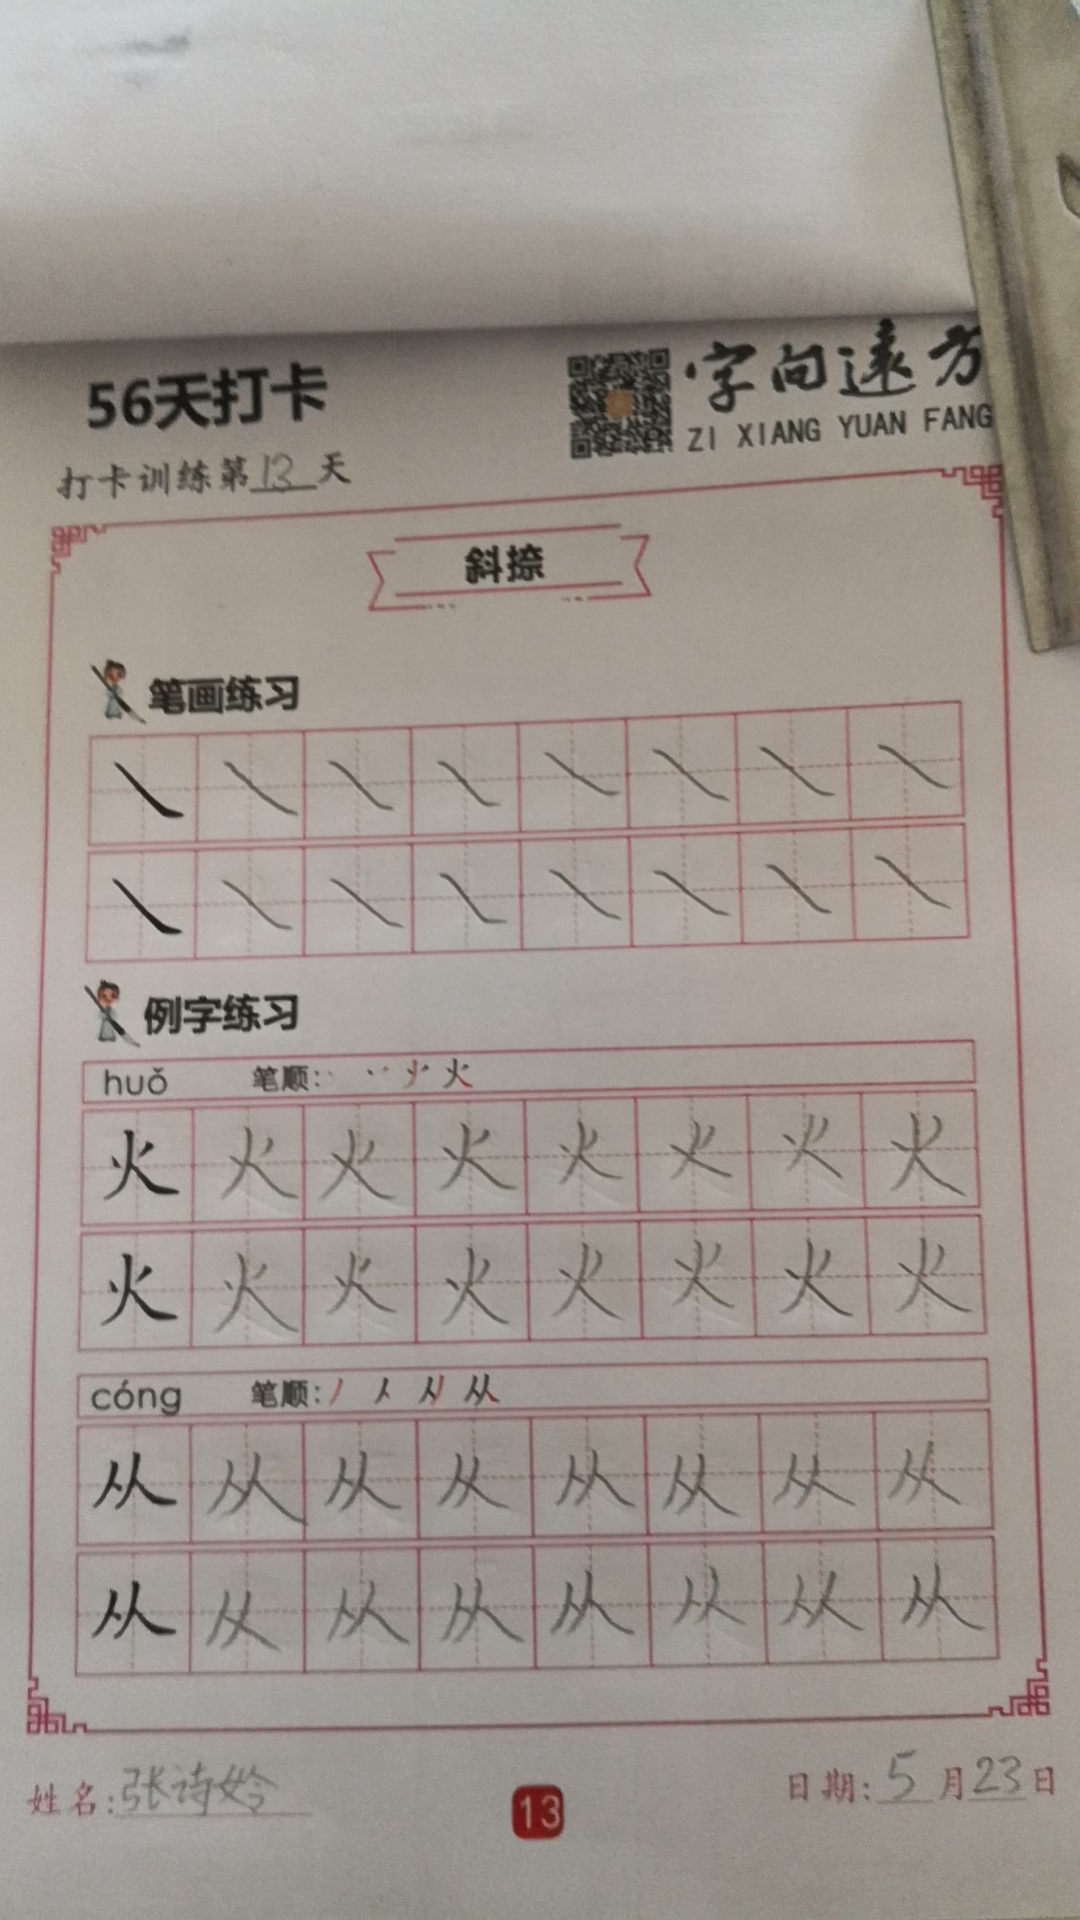 56天打卡
字向遠方
ZI XIANG YUAN FANG
打卡训练第13天
斜捺
笔画练习
㇏ ㇏ ㇏ ㇏ ㇏ ㇏ ㇏ ㇏
㇏ ㇏ ㇏ ㇏ ㇏ ㇏ ㇏ ㇏
例字练习
huǒ 笔顺: 火
火 火 火 火 火 火 火 火
火 火 火 火 火 火 火 火
cóng 笔顺: 丿 人 从
从 从 从 从 从 从 从 从
从 从 从 从 从 从 从 从
姓名:张诗妗
13
日期:5月23日